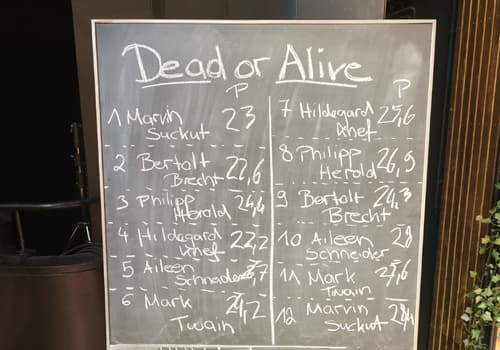 Dead or Alive
P
1 Marvin
Suckut 23
2 Bertolt
Brecht 22,6
3 Philipp
Herold 24,4
4 Hildegard
Knef 22,2
5 Aileen
Schneider
6 Mark
Twain 24,2
P
7 Hildegard
Knef 25,6
8 Philipp
Herold 26,9
9 Bertolt
Brecht 24,3
10 Aileen
Schneider 28
11 Mark
Twain
12 Marvin
Suckut